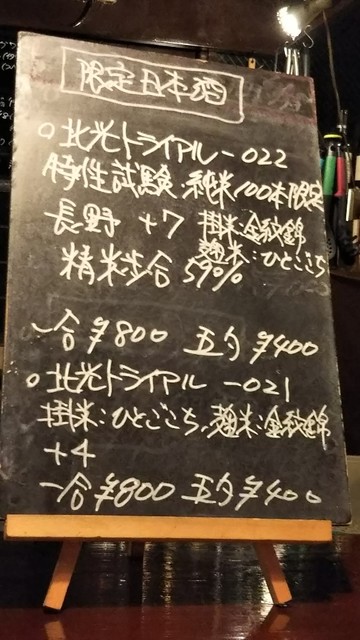 限定日本酒
○北光トライアル-022
特性試験 純米100本限定
長野 +7 掛米:金紋錦
麹米:ひとごこち
精米歩合59%
一合¥800 五勺¥400
○北光トライアル-021
掛米:ひとごこち、麹米:金紋錦
+4
一合¥800 五勺¥400